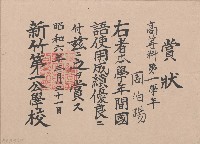 賞狀
高等科第一學年
周伯陽
右者本學年間國
語使用成績優良
付茲ニ之ヲ賞ス
昭和六年三月二十一日
新竹第一公學校